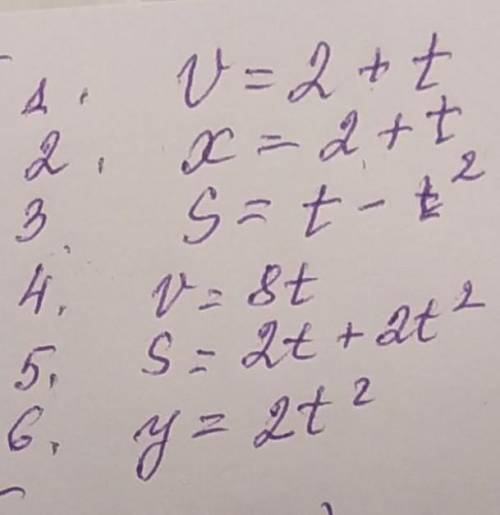 1. v = 2 + t
2. x = 2 + t
3. S = t - t²
4. v = 8t
5. S = 2t + 2t²
6. y = 2t²